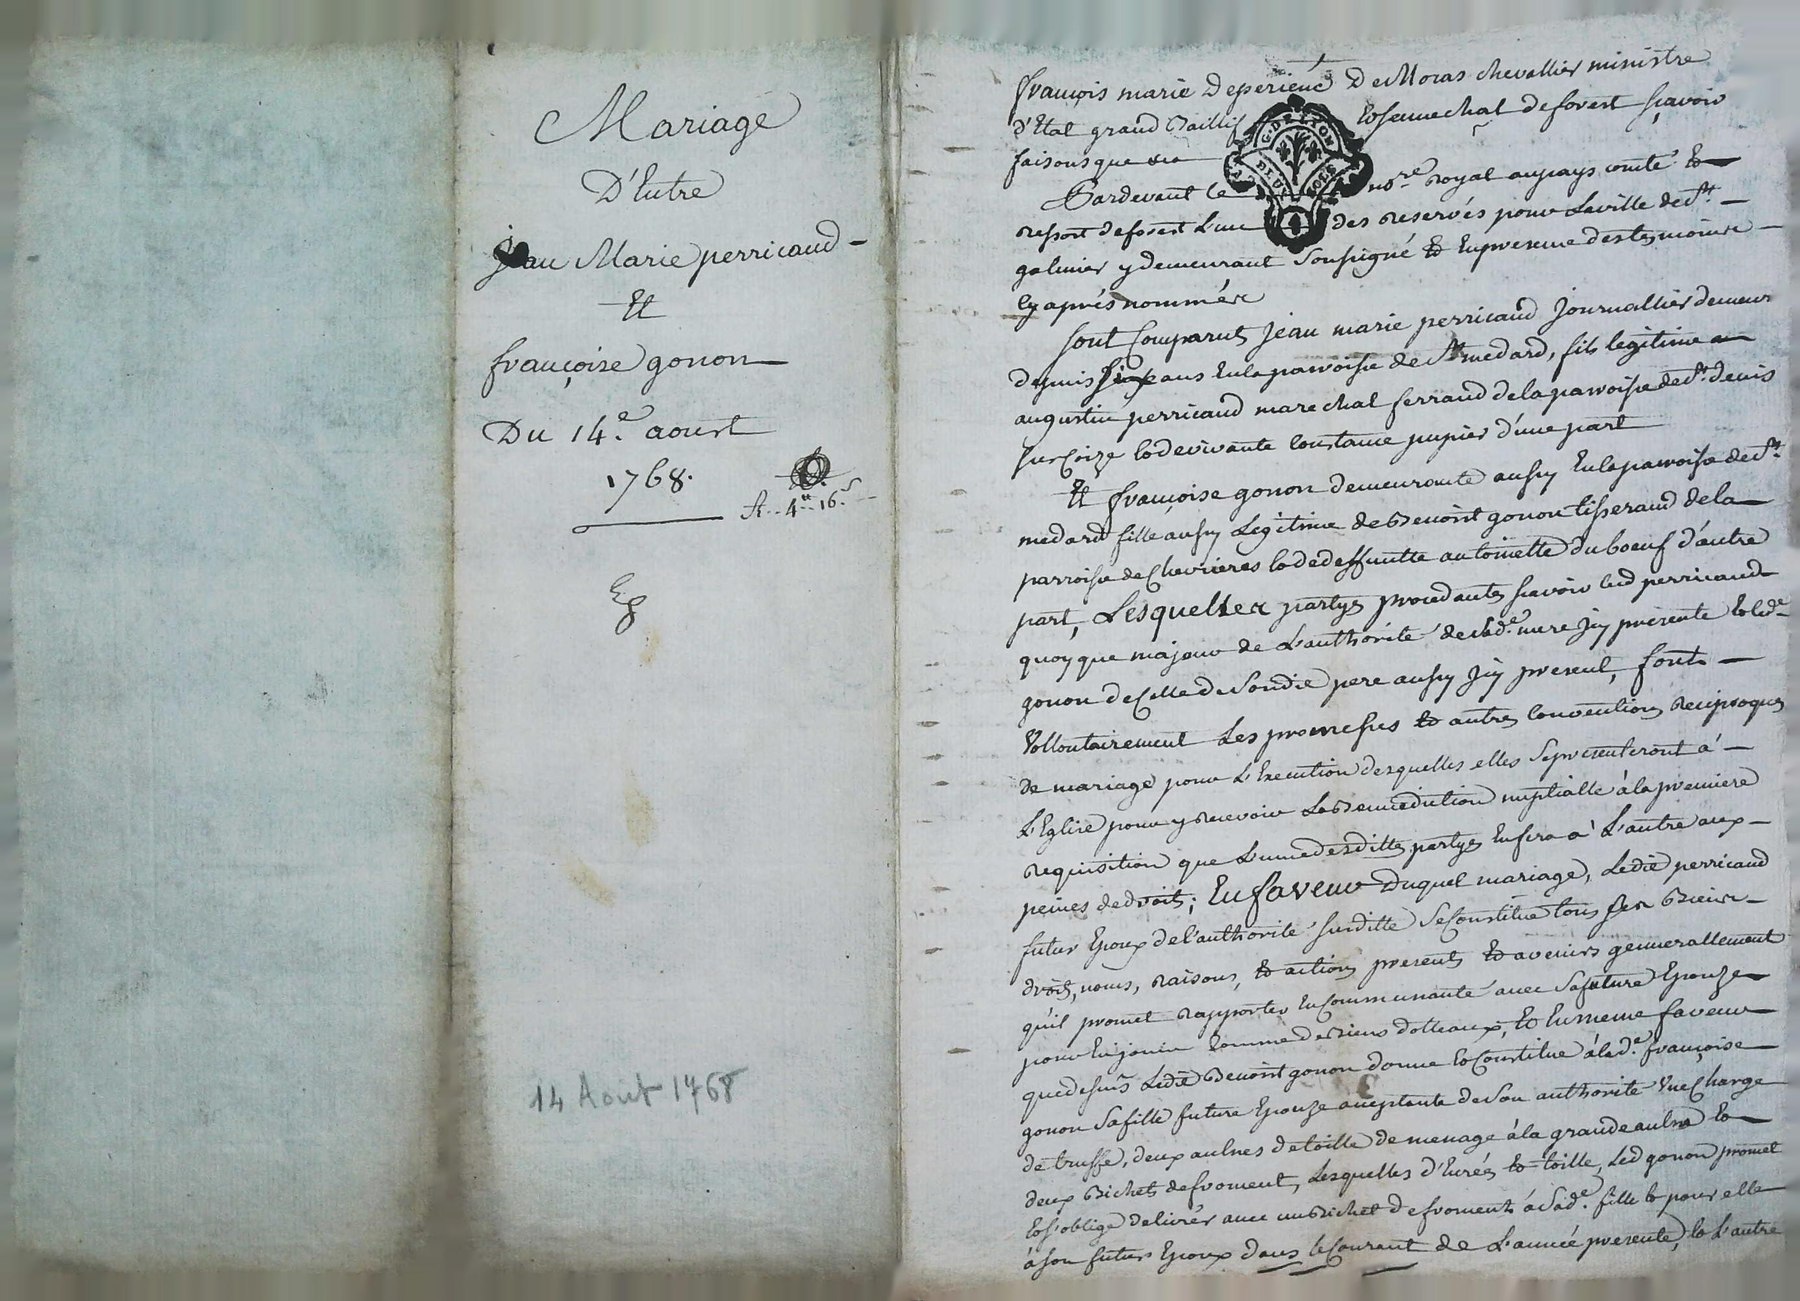 Mariage
D'Entre
jean Marie perricaud
Et
françoise gonon
Du 14e. aoust
1768.
A.. 4tt.. 16s
14 Aout 1768
françois marie Depeirenc De Moras chevallier ministre
d'Etat grand Baillif et senechal deforest sçavoir
faisons que
G. DE LYON
DEUX SOLS
Pardevant le nore. Royal aupays comté et
ressort deforest L'un des reservés pour Laville de St.
galmier y demeurant soussigné et En presence des temoins
Cy aprés nommés
sont Comparus jean marie perricaud journallier demeur
depuis six ans En la parroisse de St medard, fils legitime
augustin perricaud marechal ferrand dela parroisse de St. denis
sur Coize et de vivante Constance pupier d'une part
Et françoise gonon demeurante aussy En la parroisse de St.
medard fille aussy Legitime de Benoist gonon tisserand dela
parroisse de Chevrieres et de deffuntte antoinette Duboeuf d'autre
part, Lesquelles partyes procedantes scavoir led perricaud
quoy que majeur de L'authorité de sade. mere Jcy presente et lade.
gonon de Celle de son dit pere aussy Jcy present, font
Vollontairement Les promesses et autres Conventions Reciproques
de mariage pour L'Execution desquelles elles se presenteront a
L'Eglise pour y Recevoir La Benediction nuptialle à la premiere
requisition que L'une desdittes partyes En fera a L'autre aux
peines de droit; En faveur Duquel mariage, Ledit perricaud
futur Epoux de l'authorité susditte se Constitue tous ses Biens
droits, noms, raisons, et actions presents et avenirs generallement
qu'il promet Rapporter En Communauté avec sa future Epouze
pour En jouir Comme de Biens dotteaux, Et En meme faveur
que dessus Ledit Benoist gonon donne et Constitue à lade. françoise
gonon sa fille future Epouze acceptante de son authorité Une Charge
de truffe, deux aulnes de toille de menage à la grande aulne et
deux Bichets de froment, Lesquelles d'Enrées et toille, Led gonon promet
et s'oblige delivrer avec un Bichet de froment à sade. fille et pour elle
à son futur Epoux dans le Courant de L'année presente, et L'autre